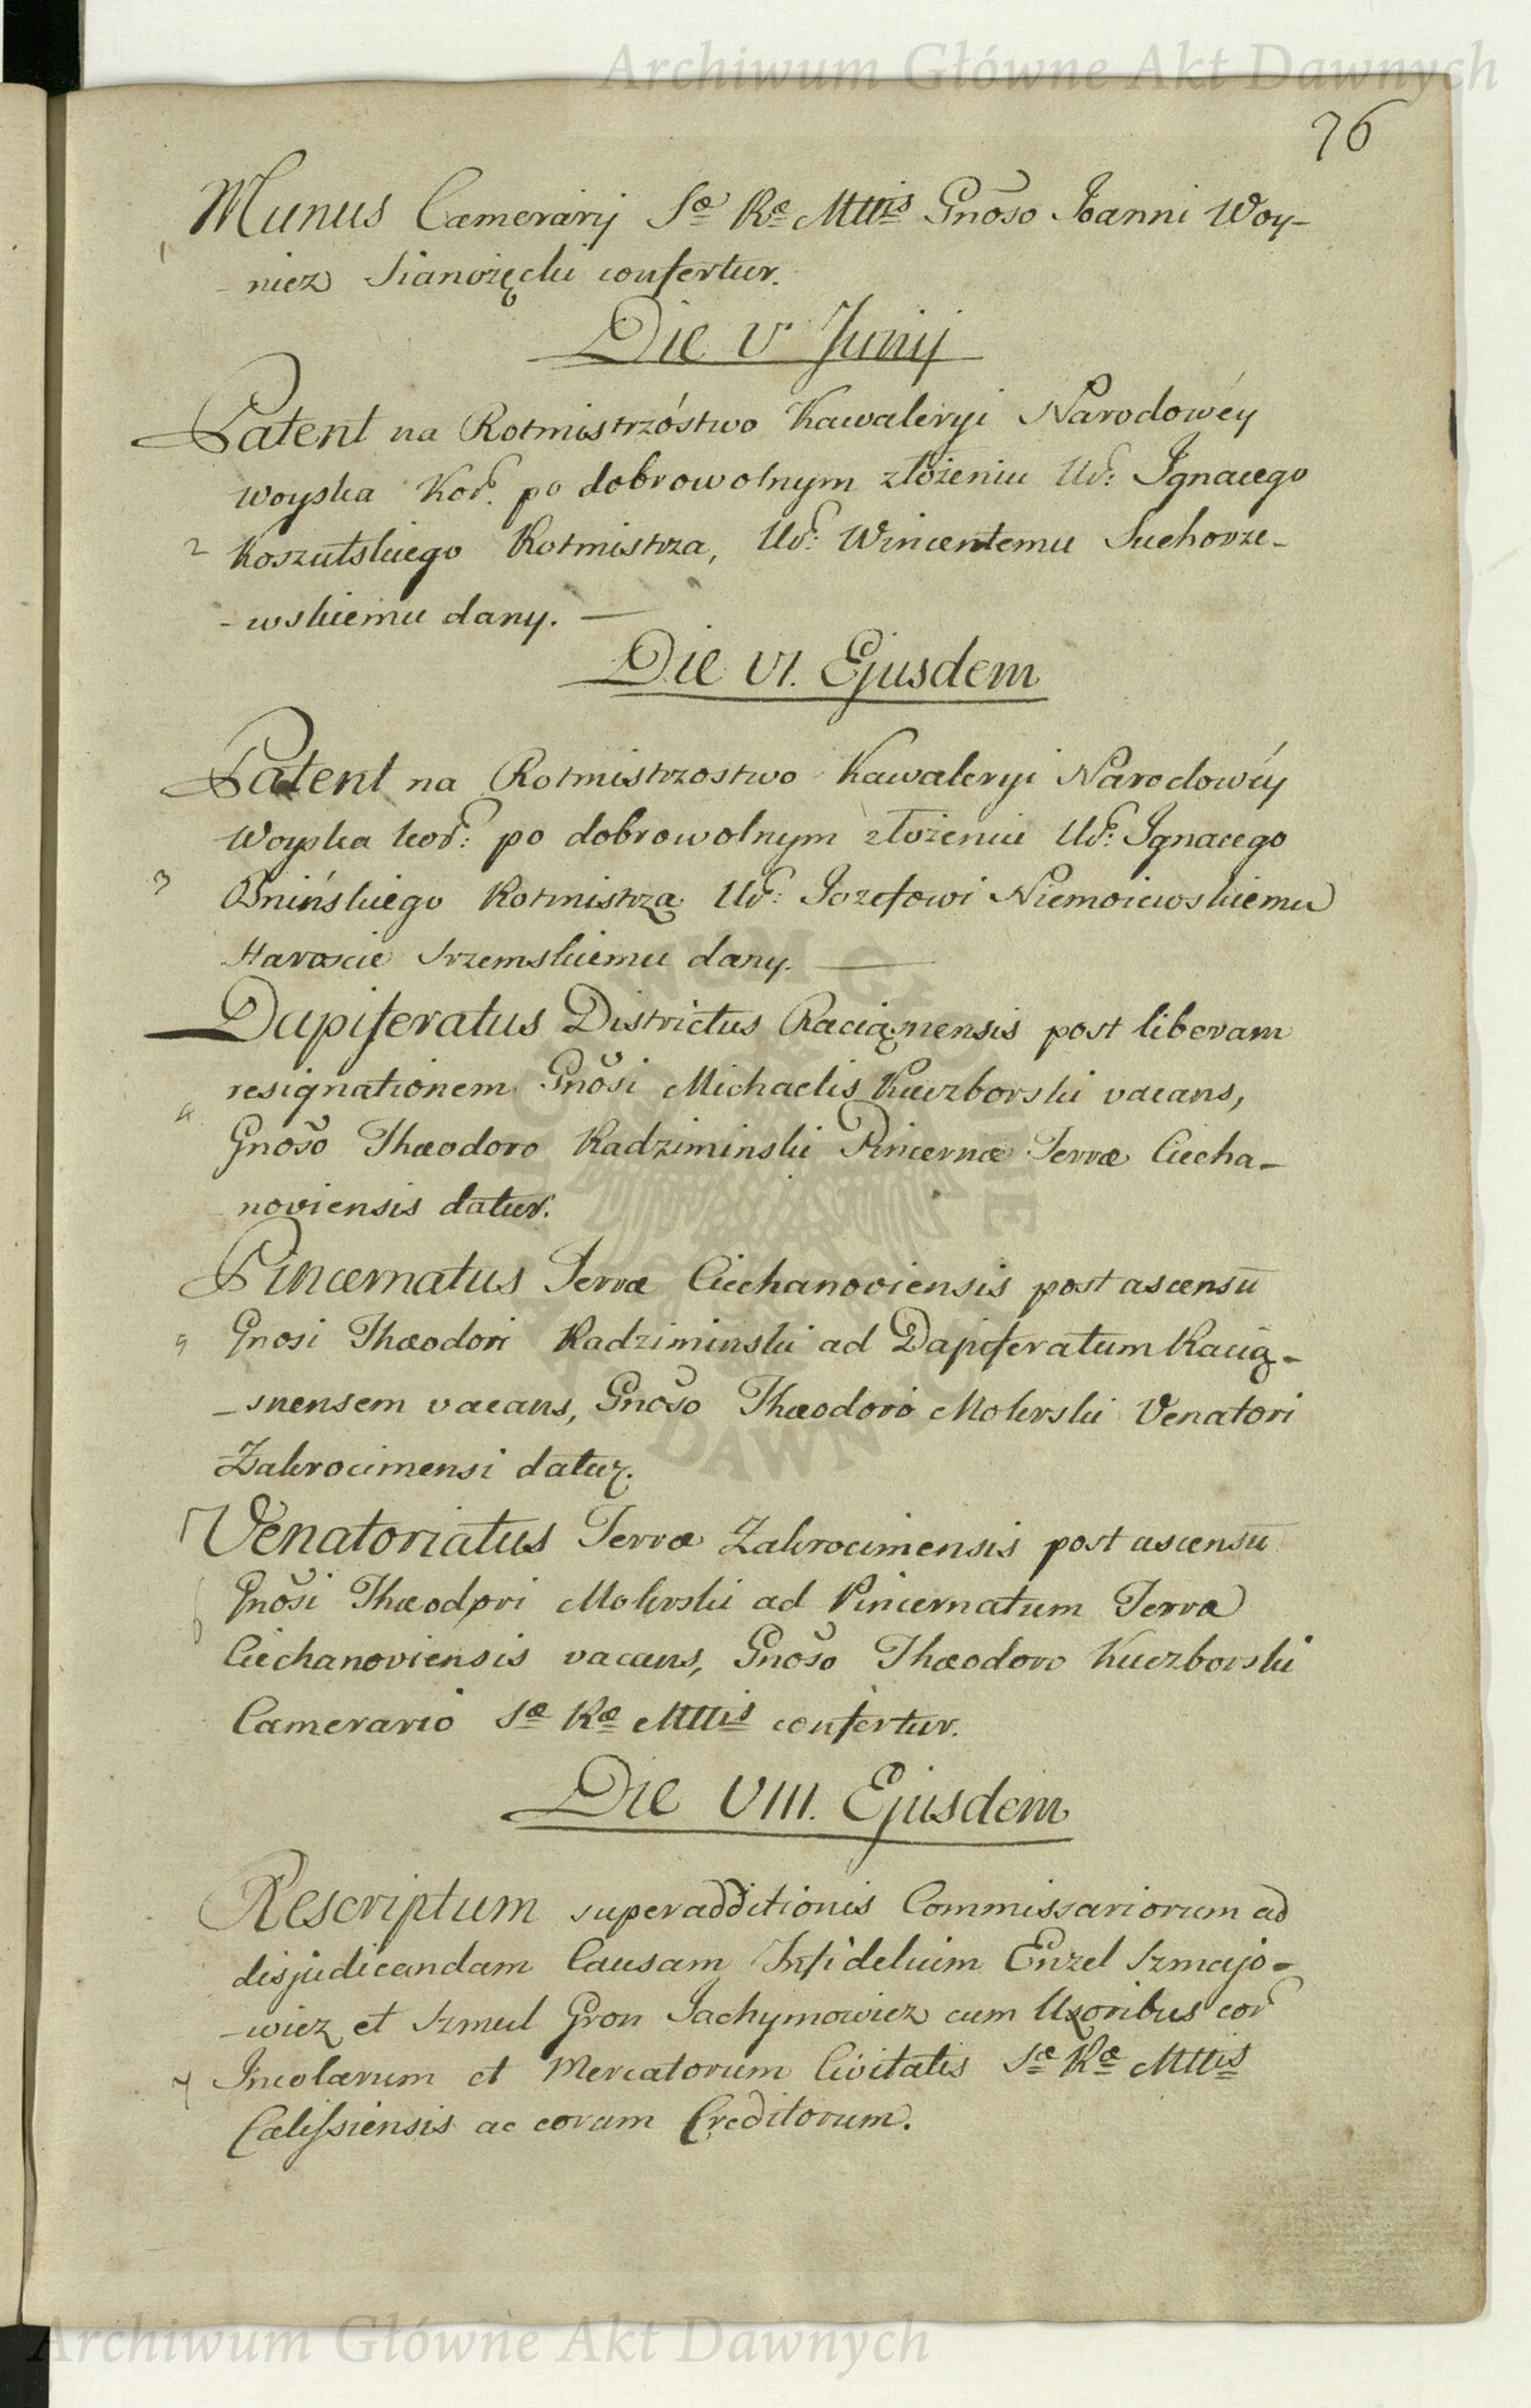 Archiwum Główne Akt Dawnych
76
Munus Camerarij Sæ Ræ Mttis Gnoso Joanni Woy-
1
-nicz Sianożęcki confertur.
Die V Junij
Patent na Rotmistrzóstwo Kawaleryi Narodowéy
woyska Kor. po dobrowolnym złożeniu Ur: Ignacego
2 Koszutskiego Rotmistrza, Ur: Wincentemu Suchorze-
-wskiemu dany. —
Die VI. Ejusdem
Patent na Rotmistrzostwo Kawaleryi Narodowéy
Woyska kor: po dobrowolnym złożeniu Ur: Ignacego
3 Bnińskiego Rotmistrza Ur: Jozefowi Niemoiewskiemu
Staroscie Srzemskiemu dany. —
Dapiferatus Districtus Raciąnensis post liberam
resignationem Gnosi Michaelis Kuczborski vacans,
4
Gnoso Thæodoro Radziminski Pincernæ Terræ Ciecha-
noviensis datur.
Pincernatus Terræ Ciechanoviensis post ascensū
5 Gnosi Thæodori Radziminski ad Dapiferatum Racią-
-snensem vacans, Gnoso Thæodoro Mokrski Venatori
Zakrocimensi datur.
Venatoriatus Terræ Zakrocimensis post ascensū
6 Gnosi Thæodori Mokrski ad Pincernatum Terræ
Ciechanoviensis vacans, Gnoso Thæodoro Kuczborski
Camerario Sæ Ræ Mttis confertur.
Die VIII. Ejusdem
Rescriptum superadditionis Commissariorum ad
disjudicandam Causam Infidelium Enzel Szmajo-
-wicz et Szmul Gron Jachymowicz cum Uxoribus eor
7 Incolarum et Mercatorum Civitatis Sæ Ræ Mttis
Calissiensis ac eorum Creditorum.
Archiwum Główne Akt Dawnych